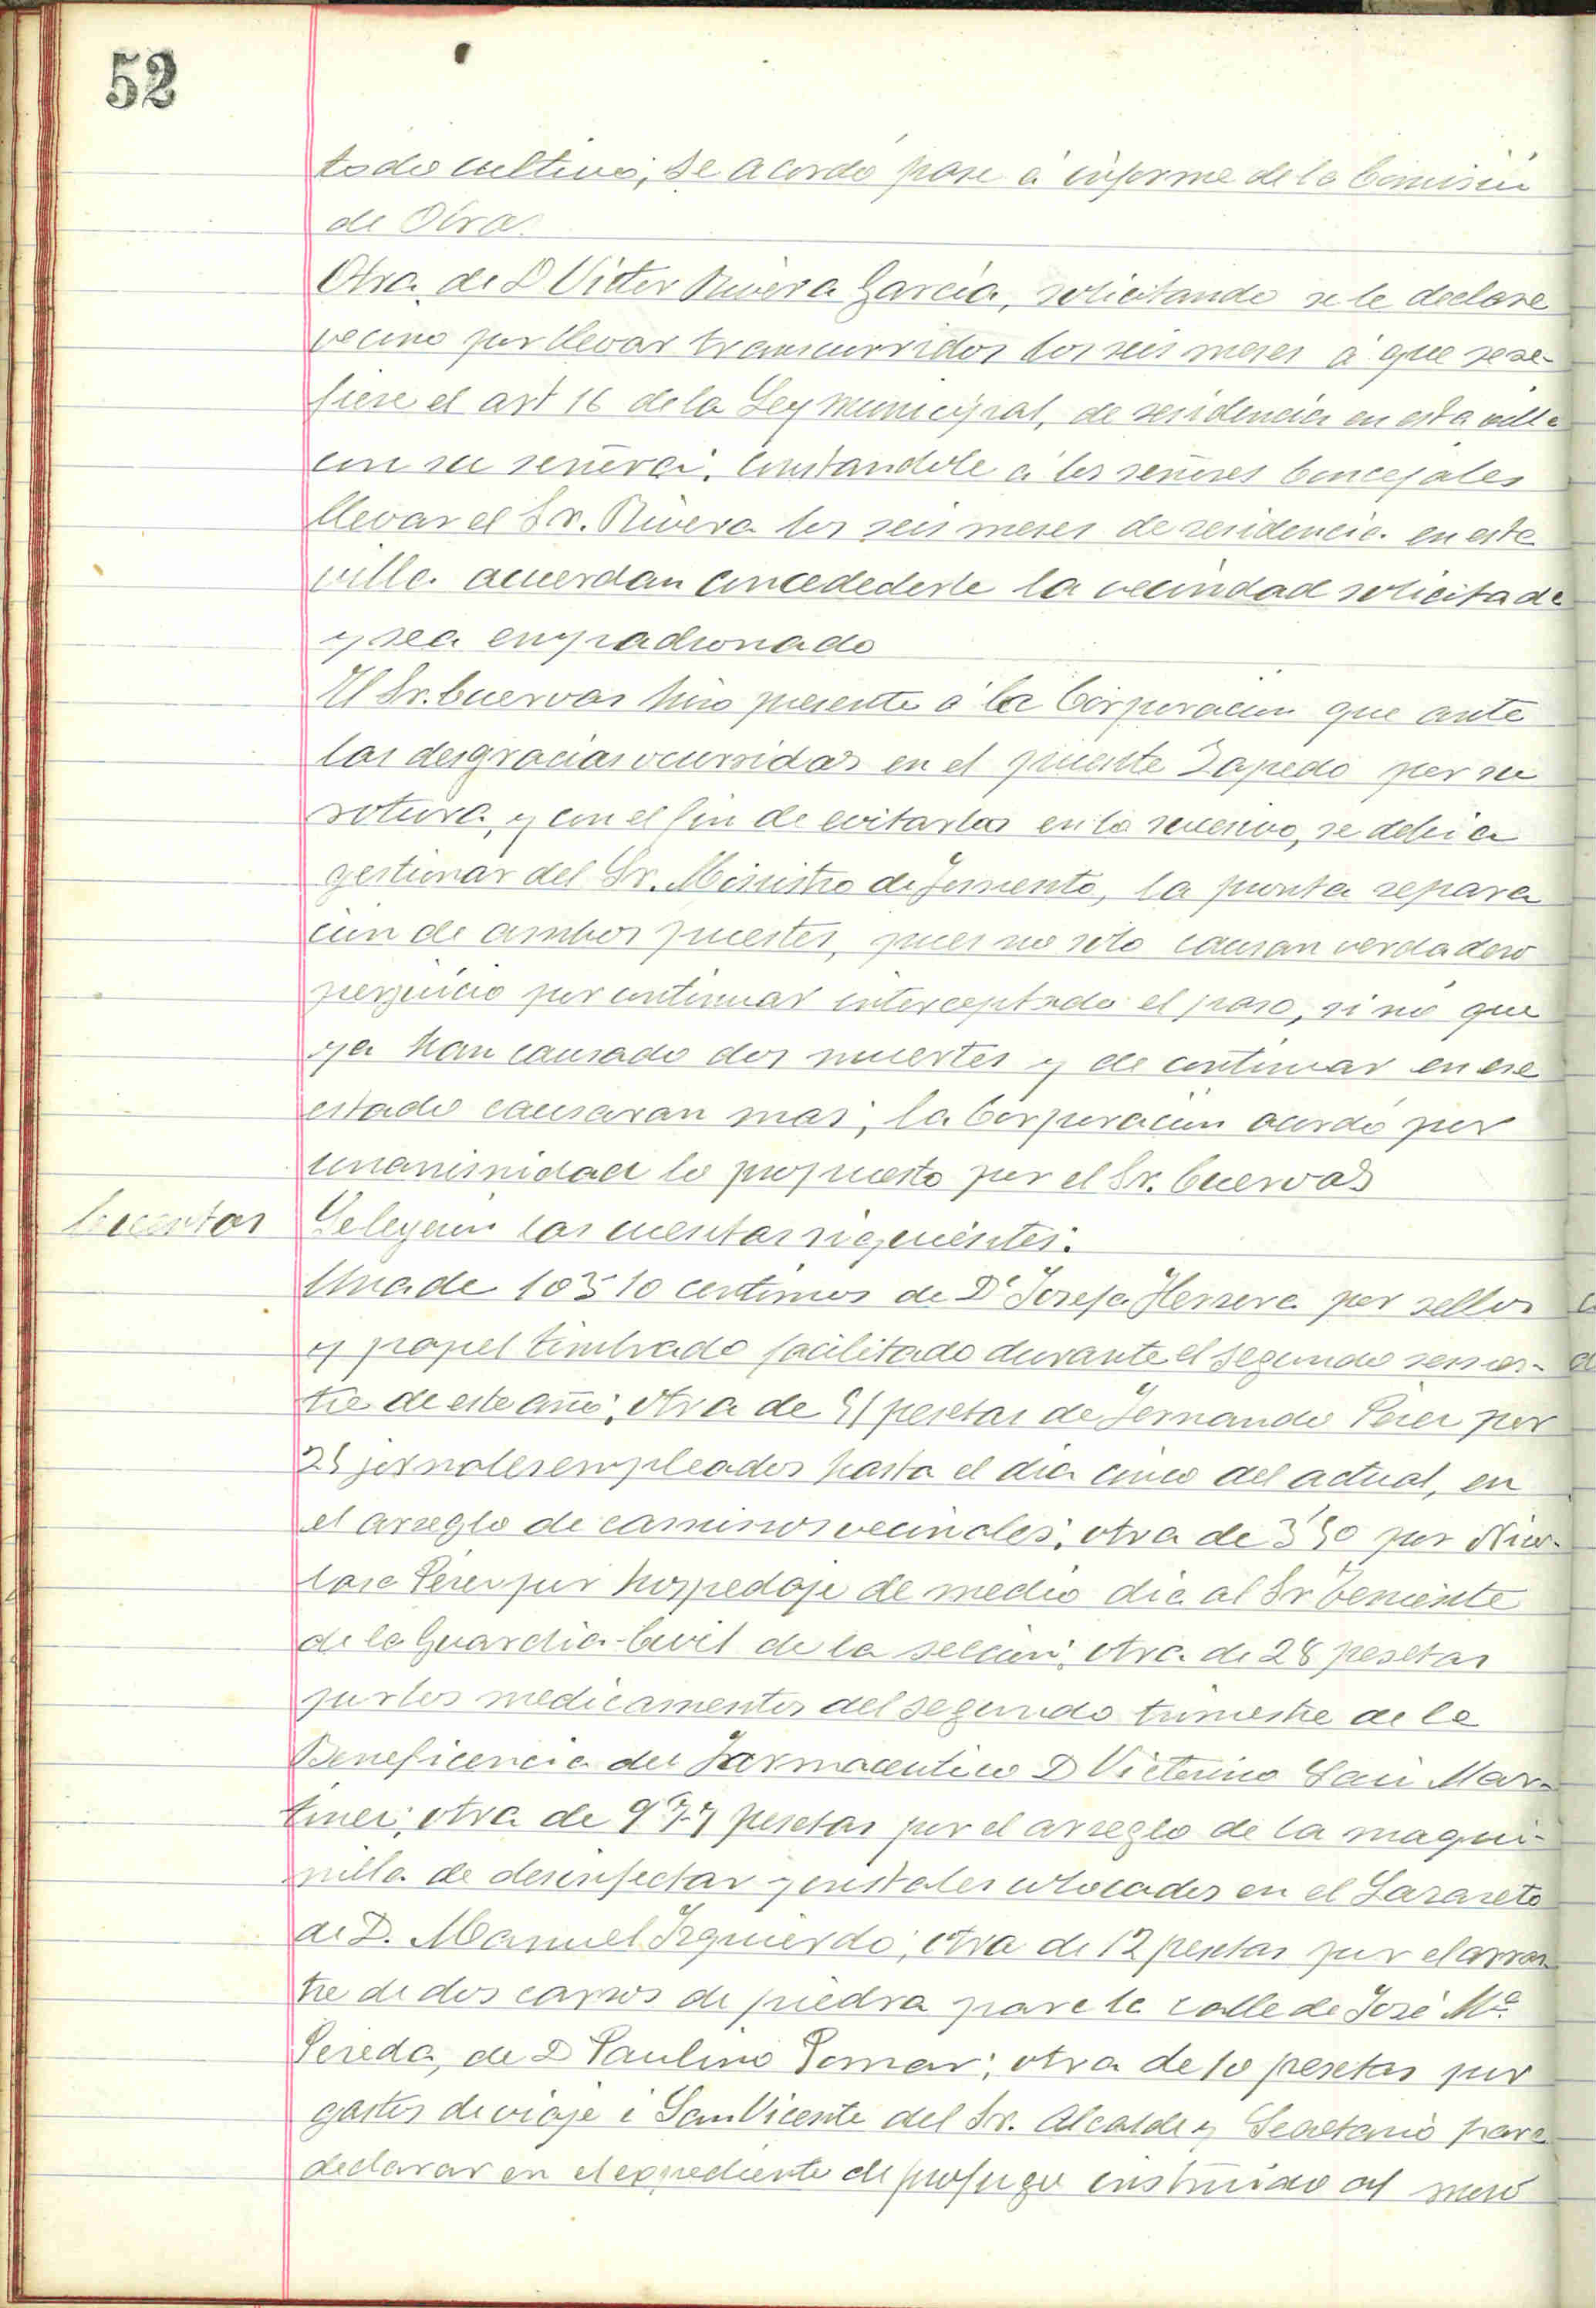 52
todo cultivo, se acordó pase á informe de la Comisión
de Obras.
Otra de D Victor Rivera García, solicitando se le declare
vecino por llevar transcurridos los seis meses á que se re-
fiere el art 16 de la Ley Municipal, de residencia en esta villa
con su señora; constandole á los señores Concejales
llevar el Sr. Rivera los seis meses de residencia en esta
villa acuerdan concedederle la vecindad solicitada
y sea empadronado
El Sr. Cuervas hizo presente á la Corporación que ante
las desgracias ocurridas en el puente Zapedo por su
rotura, y con el fin de evitarlas en lo sucesivo, se debia
gestionar del Sr. Ministro de Fomento, la pronta repara
ción de ambos puestes, pues no solo causan verdadero
perjuicio por continuar interceptado el paso, si no que
ya han causado dos muertes y de continuar en ese
estado causaran mas; la Corporación acordó por
unanimidad lo propuesto por el Sr. Cuervas
Cuentas Se leyeron las cuentas siguientes:
Una de 103'10 centimos de Dª Josefa Herrera por sellos
y papel timbrado facilitado durante el segundo semes-
tre de este año; otra de 51 pesetas de Fernando Perez por
25 jornales empleados hasta el dia cinco del actual, en
el arreglo de caminos vecinales; otra de 3'50 por Nico-
lasa Perez por hospedaje de medio dia al Sr Teniente
de la Guardia-Civil de la sección; otra de 28 pesetas
por los medicamentos del segundo trimestre de la
Beneficencia del Farmaceutico D Victorino San Mar-
tinez; otra de 9'77 pesetas por el arreglo de la maqui-
nilla de desinfectar y cristales colocados en el Lazareto
de D. Manuel Izquierdo; otra de 12 pesetas por el arras
tre de dos carros de piedra para la calle de José Mª
Pereda, de D Paulino Pomar; otra de 10 pesetas por
gastos de viaje á San Vicente del Sr. Alcalde y Secretario para
declarar en el expediente de profugo instruido al mozo